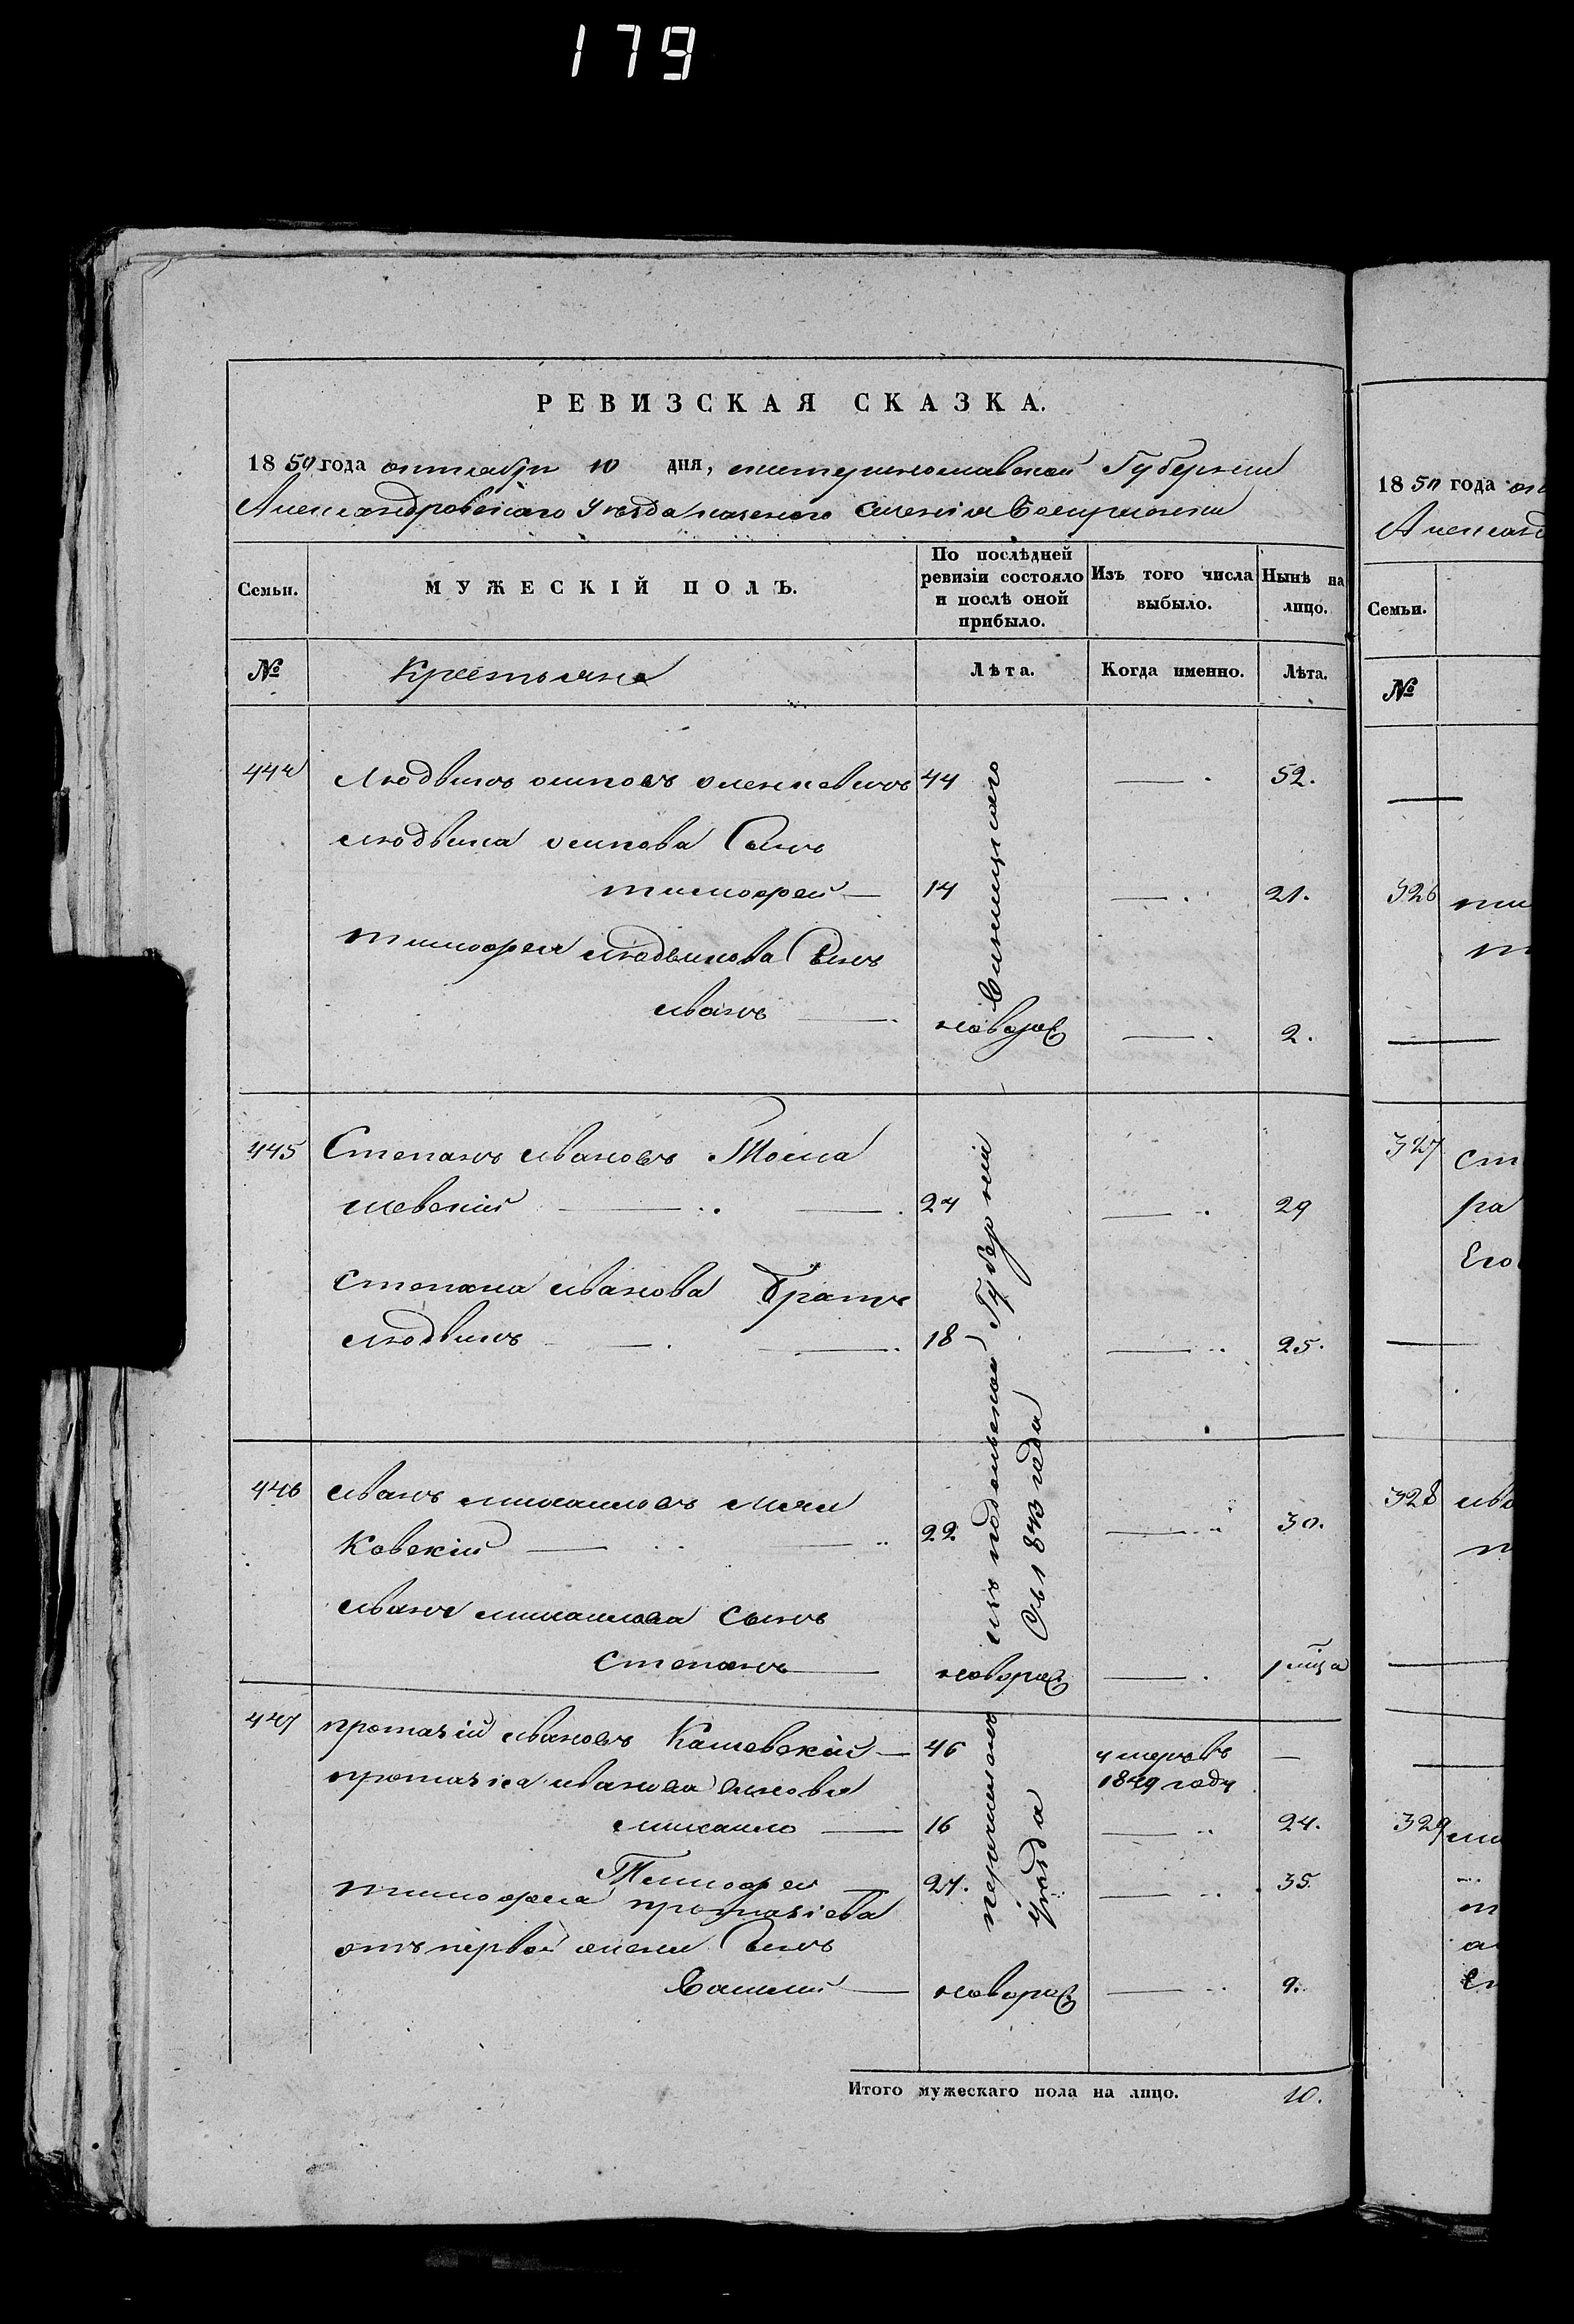 179
РЕВИЗСКАЯ СКАЗКА.
1850 года октября 10 дня, екатеринославской Губернии
Александровскаго Уезда казенного Селенія
Семьи.
МУЖЕСКІЙ ПОЛЪ.
По послѣдней ревизіи состояло и послѣ оной прибыло.
Изъ того числа выбыло.
Нынѣ на лицо.
№
Крестьяне
Лѣта.
Когда именно.
Лѣта.
444 Людвикъ осиповъ 44 — 52.
людвика осипова Сынъ
тимофей — 14 — 21.
тимофея людвикова Сынъ
иванъ — новорож — 2.
445 Степанъ ивановъ
шевскій — 24 — 29
степана иванова братъ
людвикъ — 18 — 25.
446 иванъ михаиловъ
ковскій — 22 — 30.
ивана михаилова сынъ
степанъ — новорож — 1 мца
447 протазій ивановъ Кашевскій — 46 умеръ въ 1849 году —
протазія иванова сыновья
михаило — 16 — 24.
Тимофей — 27. — 35.
тимофея протазіева
отъ первой жены Сынъ
Василій — новорож — 9.
изъ подольской Губерніи
Съ 1843 года
уезда
Итого мужескаго пола на лицо. 10.
1850 года
Александ
Семьи.
№
326
327 ст
ра
Его
328 ива
329 ми